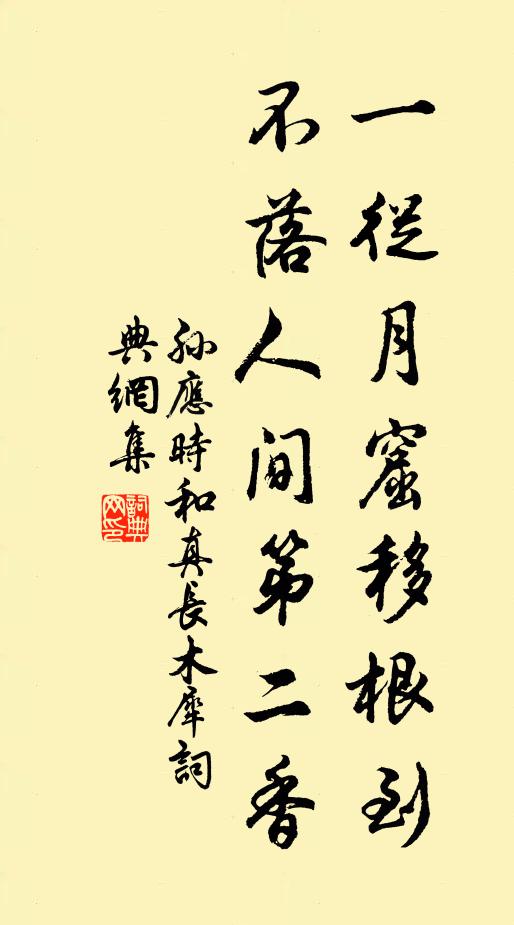 一從月窟移根到
不落人間第二香
孫應時和真長木犀詞
典網集
詞典
網印